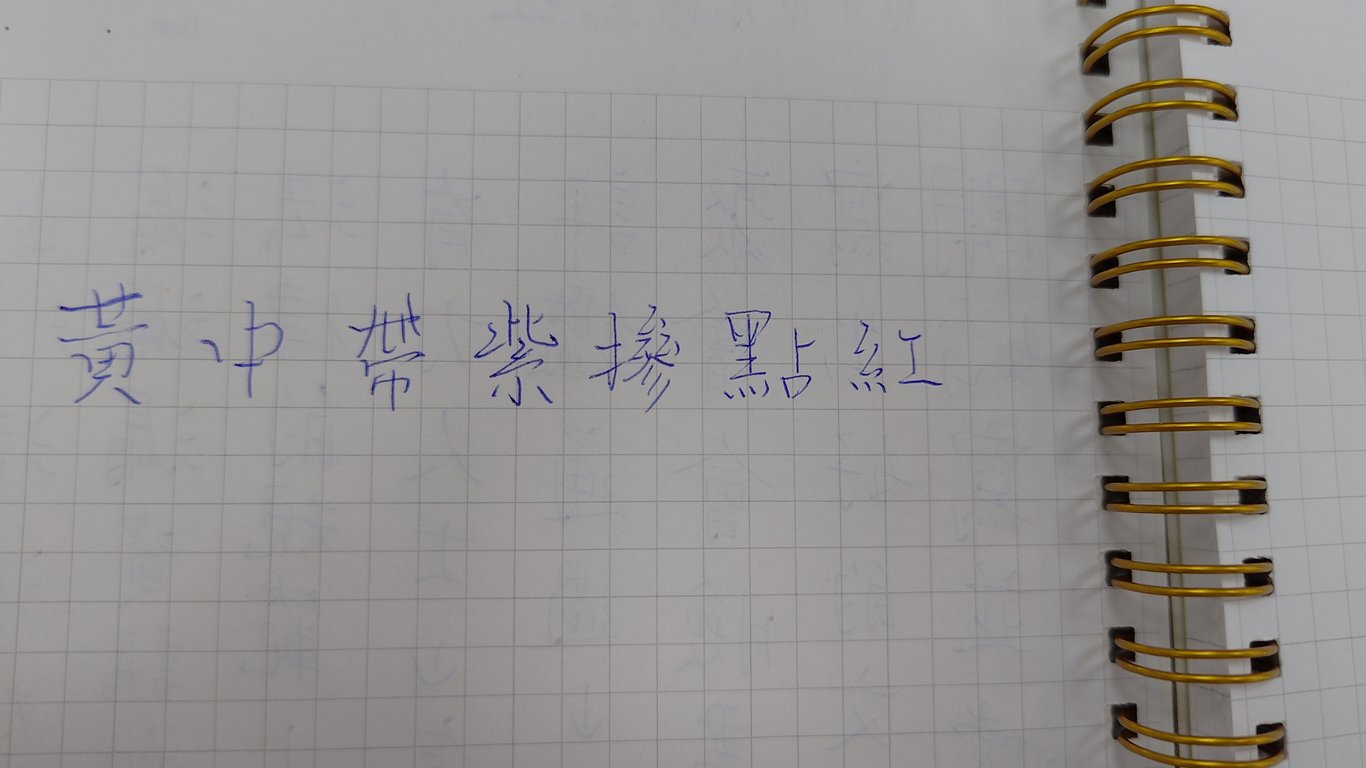 黃中帶紫摻點紅